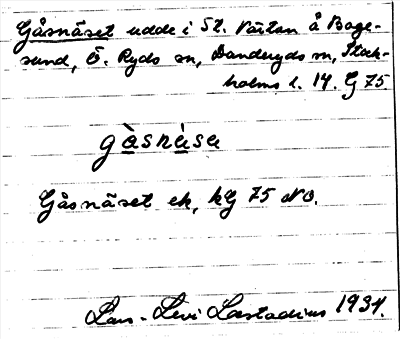 Gåsnäset udde i St. Värtan å Boge-
sund, Ö. Ryds sn, Danderyds sn, Stock-
holms l. 14. G 75
gàsnàsa
Gåsnäset ek, kG 75 NO.
Lars-Levi Læstadius 1934.